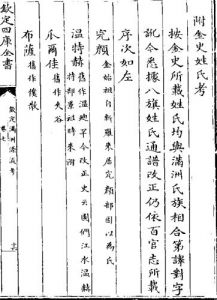 附金史姓氏考
按金史所載姓氏均與滿洲氏族相合第譯對字
訛今悉據八旗姓氏通譜改正仍依百官志所載
序次如左
完顔金始祖自新羅來居完顔部因以為氏
温特赫舊作温迪罕今改正史云團們江水温特
赫部景祖時來附
瓜爾佳舊作夾谷
布薩舊作僕散
欽定四庫全書
欽定滿洲源流考
卷七